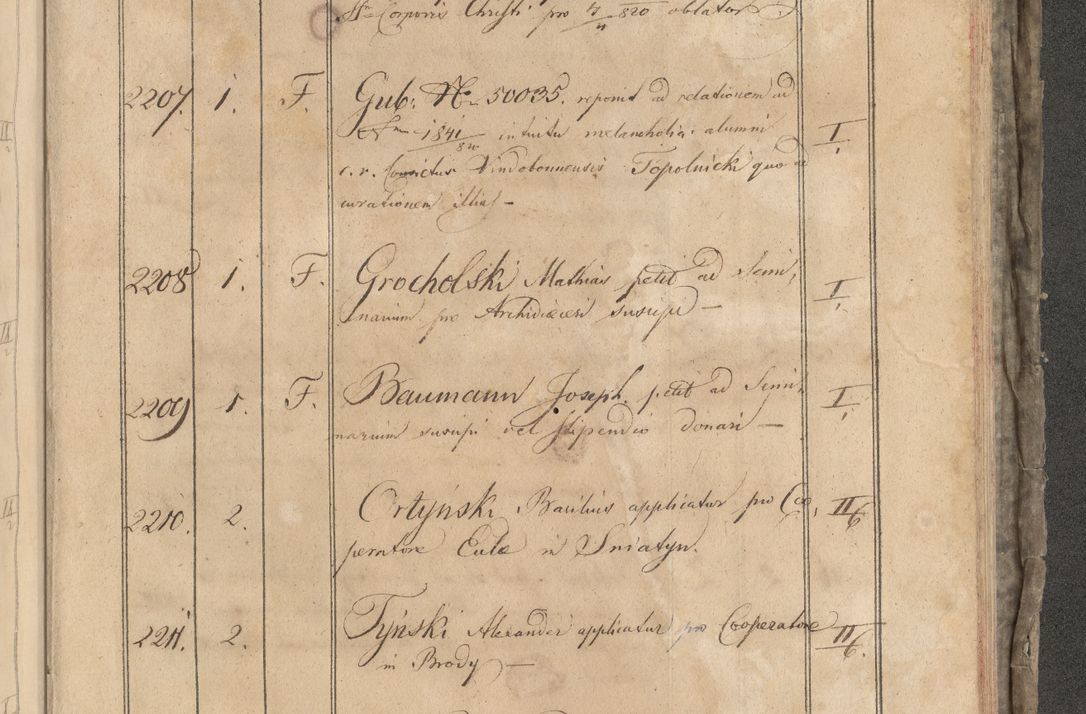 Corporis Christi pro 4/11 820 oblator
2207. 1. F. Gub: No 50035. reponit ad relationem ad I/1.
Nrm 1841/820 intuitu melancholiæ alumni
c. r. Convictus Vindobonnensis Topolnicki quo ad
curationem illius –
2208 1. F. Grocholski Mathias petit ad Semi, I/1.
narium pro Archidiœcesi suscipi –
2209 1. F. Baumann Joseph. petit ad Semi, I/1.
narium suscipi vel stipendio donari –
2210. 2. Ortyński Basilius applicatur pro Coo, II/6
peratore Eulæ in Sniatyn.
2211. 2. Tyński Alexander applicatur pro Cooperatore II/6.
in Brody –